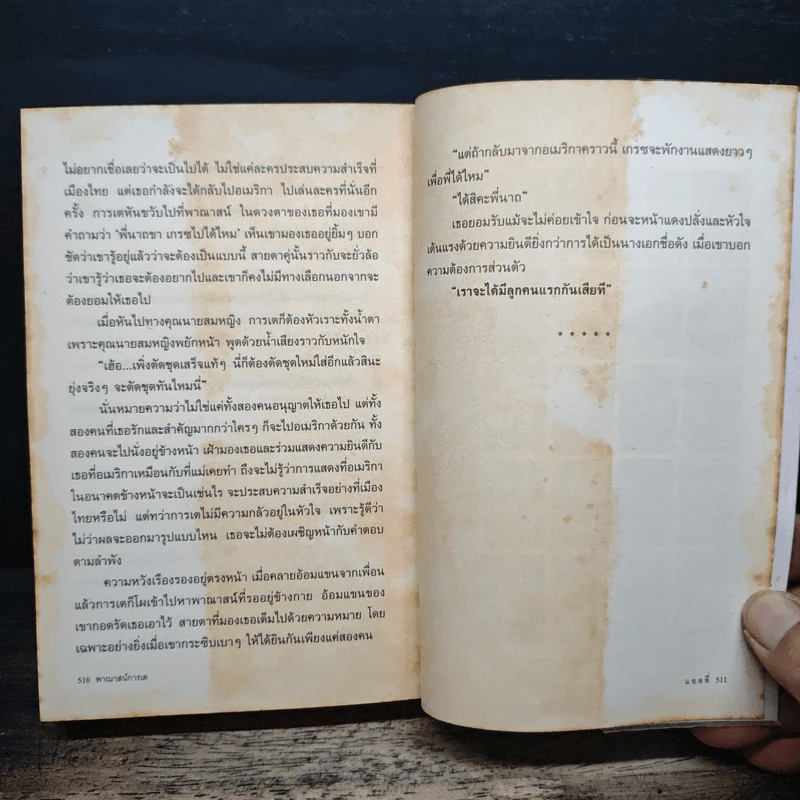 ไม่อยากเชื่อเลยว่าจะเป็นไปได้ ไม่ใช่แค่ละครประสบความสำเร็จที่
เมืองไทย แต่เธอกำลังจะได้กลับไปอเมริกา ไปเล่นละครที่นั่นอีก
ครั้ง การเตหันขวับไปที่พาณาสน์ ในดวงตาของเธอที่มองเขามี
คำถามว่า 'พี่นาถขา เกรซไปได้ไหม' เห็นเขามองเธออยู่ยิ้มๆ บอก
ชัดว่าเขารู้อยู่แล้วว่าจะต้องเป็นแบบนี้ สายตาคู่นั้นราวกับจะยั่วล้อ
ว่าเขารู้ว่าเธอจะต้องอยากไปและเขาก็คงไม่มีทางเลือกนอกจากจะ
ต้องยอมให้เธอไป
เมื่อหันไปทางคุณนายสมหญิง การเตก็ต้องหัวเราะทั้งน้ำตา
เพราะคุณนายสมหญิงพยักหน้า พูดด้วยน้ำเสียงราวกับหนักใจ
"เฮ้อ...เพิ่งตัดชุดเสร็จแท้ๆ นี่ก็ต้องตัดชุดใหม่ใส่อีกแล้วสินะ
ยุ่งจริงๆ จะตัดชุดทันไหมนี่"
นั่นหมายความว่าไม่ใช่แค่ทั้งสองคนอนุญาตให้เธอไป แต่ทั้ง
สองคนที่เธอรักและสำคัญมากกว่าใครๆ ก็จะไปอเมริกาด้วยกัน ทั้ง
สองคนจะไปนั่งอยู่ข้างหน้า เฝ้ามองเธอและร่วมแสดงความยินดีกับ
เธอที่อเมริกาเหมือนกับที่แม่เคยทำ ถึงจะไม่รู้ว่าการแสดงที่อเมริกา
ในอนาคตข้างหน้าจะเป็นเช่นไร จะประสบความสำเร็จอย่างที่เมือง
ไทยหรือไม่ แต่ทว่าการเตไม่มีความกลัวอยู่ในหัวใจ เพราะรู้ดีว่า
ไม่ว่าผลจะออกมารูปแบบไหน เธอจะไม่ต้องเผชิญหน้ากับคำตอบ
ตามลำพัง
ความหวังเรืองรองอยู่ตรงหน้า เมื่อคลายอ้อมแขนจากเพื่อน
แล้วการเตก็โผเข้าไปหาพาณาสน์ที่รออยู่ข้างกาย อ้อมแขนของ
เขากอดรัดเธอเอาไว้ สายตาที่มองเธอเต็มไปด้วยความหมาย โดย
เฉพาะอย่างยิ่งเมื่อเขากระซิบเบาๆ ให้ได้ยินกันเพียงแค่สองคน
510 พาณาสน์การเต
"แต่ถ้ากลับมาจากอเมริกาคราวนี้ เกรซจะพักงานแสดงยาวๆ
เพื่อพี่ได้ไหม"
"ได้สิคะพี่นาถ"
เธอยอมรับแม้จะไม่ค่อยเข้าใจ ก่อนจะหน้าแดงปลั่งและหัวใจ
เต้นแรงด้วยความยินดียิ่งกว่าการได้เป็นนางเอกชื่อดัง เมื่อเขาบอก
ความต้องการส่วนตัว
"เราจะได้มีลูกคนแรกกันเสียที"
* * * * *
แอดลี่ 511